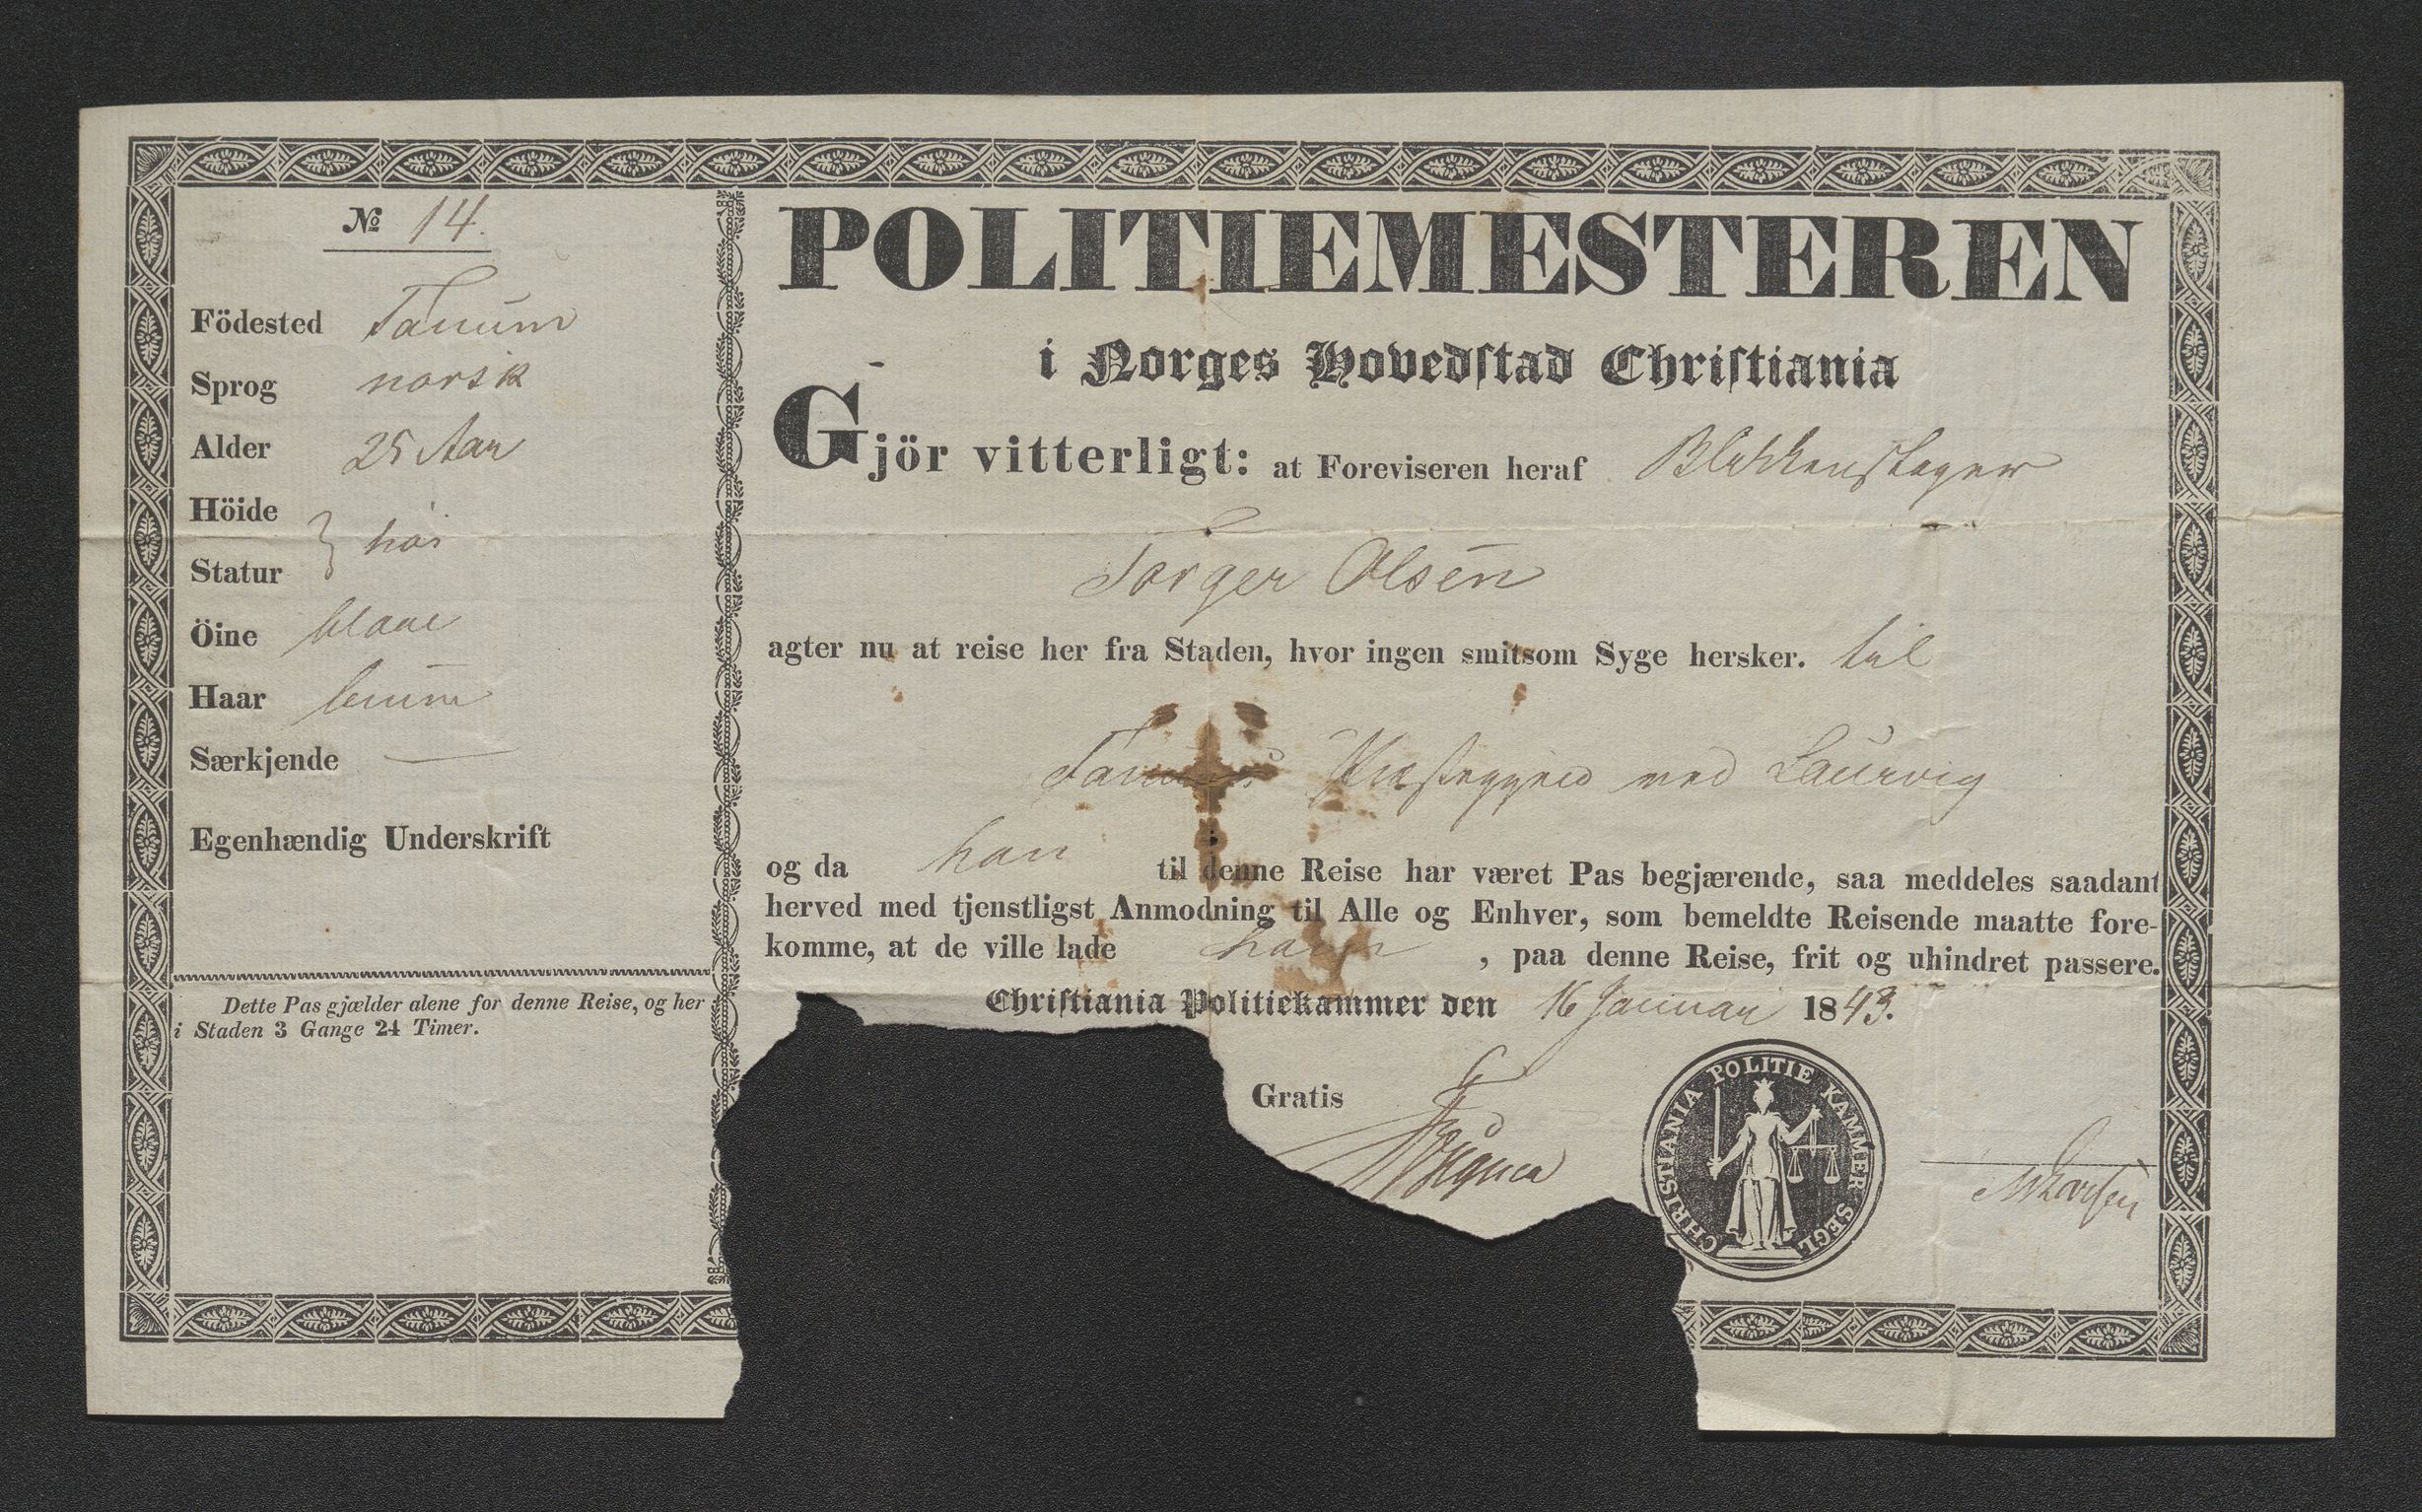 № 14.
Födested Tanum
Sprog norsk
Alder 25 Aar
Höide
høi
Statur
Öine blaae
Haar bruun
Særkjende —
Egenhændig Underskrift
Dette Pas gjælder alene for denne Reise, og her
i Staden 3 Gange 24 Timer.
POLITIEMESTEREN
i Norges Hovedſtad Chriſtiania
Gjör vitterligt: at Foreviseren heraf Blikkenslager
Torger Olsen
agter nu at reise her fra Staden, hvor ingen smitsom Syge hersker. til
Præstegjeld ved Laurvig
og da han til denne Reise har været Pas begjærende, saa meddeles saadant
herved med tjenstligst Anmodning til Alle og Enhver, som bemeldte Reisende maatte fore-
komme, at de ville lade ham, paa denne Reise, frit og uhindret passere.
Chriſtiania Politiekammer den 16 Januar 1843.
Gratis
CHRISTIANIA POLITIE KAMMER SEGL